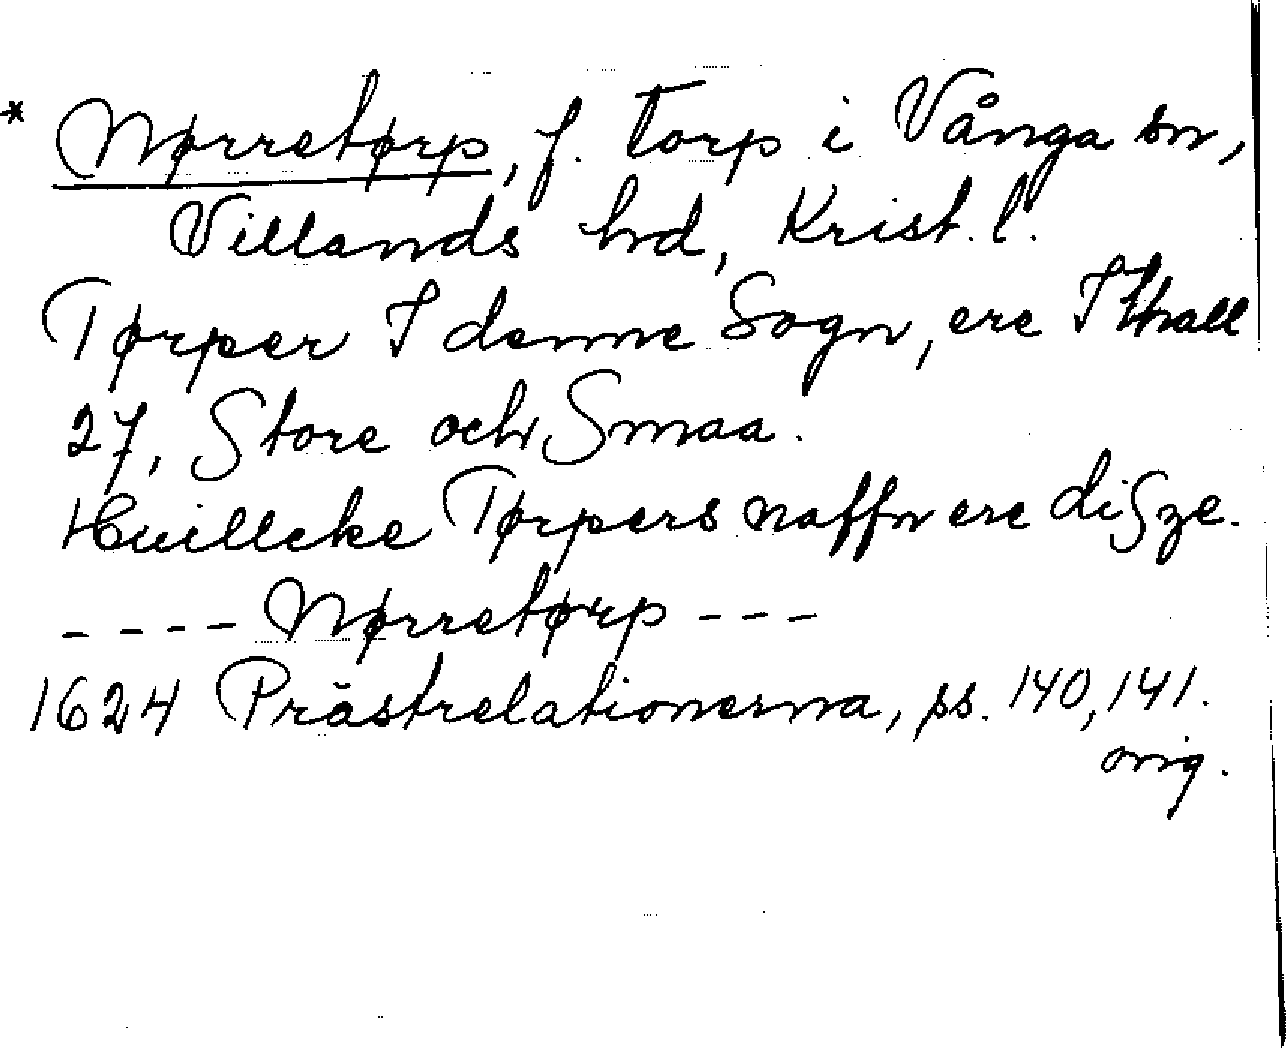 * Nørretørp, f. torp i Vånga sn,
Villands hd, Krist. l.
Tørper I denne Sogn, ere I thall
27, Store och Smaa.
Huillcke Tørpers naffn ere diSze.
- - - - Nørretørp - - -
1624 Prästrelationerna, ss. 140, 141.
orig.